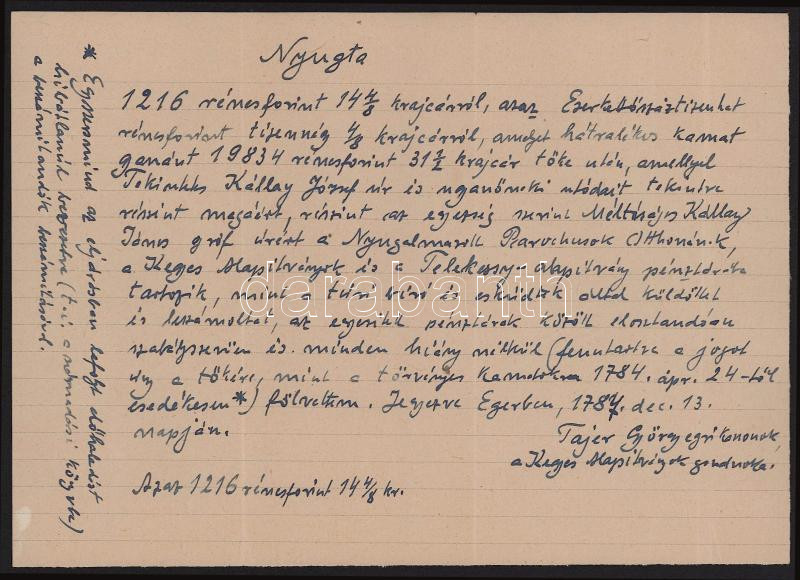 Nyugta
1216 rénesforint 14 4/8 krajcárról, azaz Ezerkettőszáztizenhat
rénesforint tizennég 4/8 krajcárról, amelyet hátralékos kamat
gyanánt 19834 rénesforint 31 krajcár tőke után, amellyel
Tekintetes Kállay József úr és ugyanőneki utódait tekintve
részint magáért, részint az egyezség szerint Méltóságos Kállay
János gróf úrért a Nyugalmazott Parochusok Otthonának,
a Kegyes Alapítványok és a Telekessy-alapítvány pénztárába
tartozik, mint a túri bíró és esküdtek által küldöttet
és leszámoltat, az egyesült pénztárak között elosztandóan
szabályszerűen és minden hiány nélkül (fenntartva a jogot
úgy a tőkére, mint a törvényes kamatokra 1784. ápr. 24-től
esedékesen*) fölvettem. Jegyezve Egerben, 1787. dec. 13.
napján.
Tajer György egri kanonok,
a Kegyes Alapítványok gondnoka.
Azaz 1216 rénesforint 14 4/8 kr.
* Egyszersmind az eljárásban lefolyt
hibátlanul bevezetve (t. i. a közgyűlés)
a beszámítandók beszámításával.
darabanth